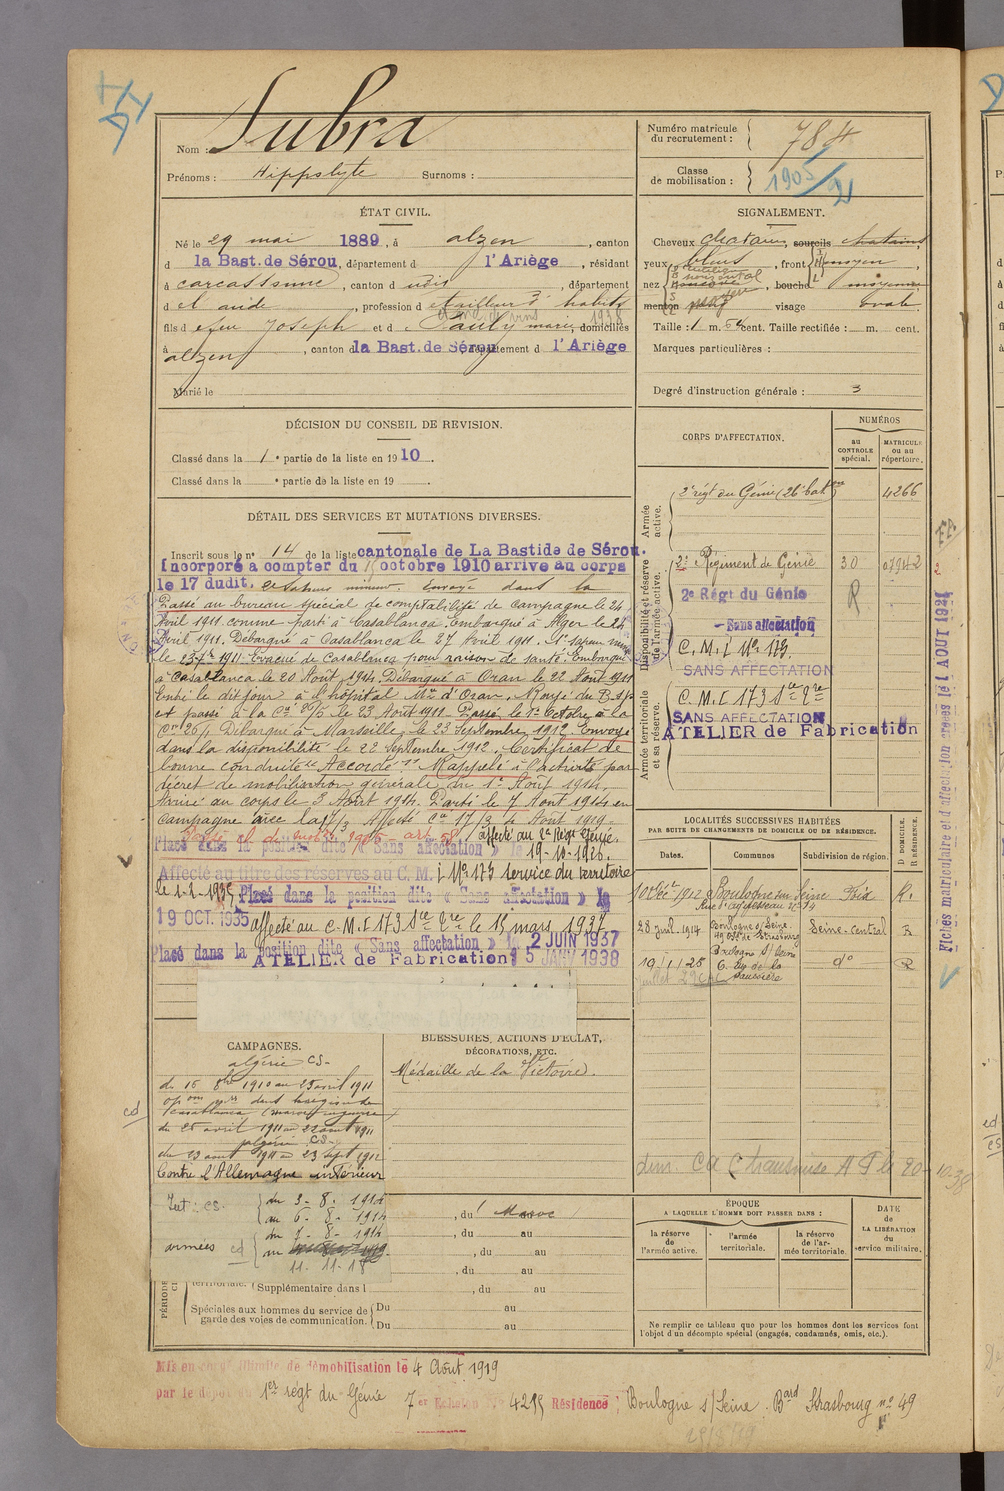 Nom : Subra
Prénoms : Hippolyte Surnoms :
Numéro matricule du recrutement : 784
Classe de mobilisation : 1905/2
ÉTAT CIVIL.
Né le 29 mai 1889, à alzen, canton
d la Bast. de Sérou, département d l'Ariège, résidant
à carcassonne, canton d udis, département
d el aude, profession d tailleur d' habits
1938
fils d efeu Joseph et d Pauly marie domiciliés
à alzen, canton d la Bast. de Sérou département d l'Ariège
Marié le
SIGNALEMENT.
Cheveux chatains, sourcils chatains,
yeux bleus, front moyen,
nez horizontal, bouche moyenne
menton visage ovale
Taille : 1 m. cent. Taille rectifiée : m. cent.
Marques particulières :
Degré d'instruction générale : 3
DÉCISION DU CONSEIL DE REVISION.
Classé dans la 1e partie de la liste en 1910.
Classé dans la e partie de la liste en 19 .
CORPS D'AFFECTATION.
NUMÉROS
au CONTROLE spécial.
MATRICULE ou au répertoire.
Armée active.
2e régt du Génie (26e baton) 4266
Disponibilité et réserve de l'armée active.
2e Régiment de Génie 30 07942
2e Régt du Génie R
Sans affectation
C. M. I No 173
SANS AFFECTATION
Armée territoriale et sa réserve.
C. M. I 173 Sce Gre
SANS AFFECTATION
ATELIER de Fabrication
DÉTAIL DES SERVICES ET MUTATIONS DIVERSES.
Inscrit sous le no 14 de la liste cantonale de La Bastide de Sérou.
Incorporé a compter du octobre 1910 arrive au corps
le 17 dudit, et Sapeur mineur. Envoyé dans la
Passé au bureau spécial de comptabilité de campagne le 24
Avril 1911 comme part à Casablanca. Embarqué à Alger le 24
Avril 1911. Débarqué à Casablanca le 27 Avril 1911. 1e Sapeur
le 23 1911 Evacué de Casablanca pour raison de santé. Embarqué
à Casablanca le 20 Août 1911. Débarqué à Oran le 22 Août 1911
Entré le dit jour à l'hôpital Mre d'Oran. Rayé du B.S.
et passé à la Cie 26/5 le 23 Août 1911. Passé le 1er Octobre à la
Cie 26/1 Débarqué à Marseille le 23 Septembre 1912. Envoyé
dans la disponibilité le 22 Septembre 1912. Certificat de
bonne conduite "Accordé". Rappelé à l'activité par
décret de mobilisation générale du 1er Août 1914.
Arrivé au corps le 3 Août 1914. Parti le 7 Août 1914 en
Campagne avec la 17/3 Affecté Cie 17/3 4 Août 1919.
art. 58 affecté au 2e Régt Génie.
Placé dans la position dite « Sans affectation » le 19-10-1926.
Affecté au titre des réserves au C. M. I No 173 service du territoire
le 1-2-1935 Placé dans la position dite « Sans affectation » le
19 OCT. 1935 affecté au C.M.I 173 Sce Gre le 15 mars 1937
Placé dans la position dite « Sans affectation » le 2 JUIN 1937
ATELIER de Fabrication 15 JANV 1938
LOCALITÉS SUCCESSIVES HABITÉES
PAR SUITE DE CHANGEMENTS DE DOMICILE OU DE RÉSIDENCE.
Dates. Communes Subdivision de région. D DOMICILE. R RÉSIDENCE.
10 Déc 1912 Boulogne sur Seine Foix R.
Rue d'aguesseau no 14
28 juil. 1914 Boulogne s/Seine. Seine-Central R
49 Bd de Strasbourg
19/1/28 Boulogne s/Seine do R
6, rue de la Saussière
Fiches matriculaire et d'affectation créées le 1 AOUT 1921
CAMPAGNES.
algérie CS-
du 16 8bre 1910 au 23 avril 1911
Casablanca
du 25 avril 1911 au 22 août 1911
algérie CS-
du 23 août 1911 au 23 Sept 1912
Contre l'Allemagne intérieur
cd
Int : CS. du 3 - 8 - 1914
au 6 - 8 - 1914
armées cd du 7 - 8 - 1914
au 11-11-18
BLESSURES, ACTIONS D'ÉCLAT,
DÉCORATIONS, ETC.
Médaille de la Victoire.
, du Maroc au
, du au
, du au
, du au
territoriale. Supplémentaire dans l , du au
Spéciales aux hommes du service de garde des voies de communication. Du au
Du au
ÉPOQUE
A LAQUELLE L'HOMME DOIT PASSER DANS :
la réserve de l'armée active.
l'armée territoriale.
la réserve de l'armée territoriale.
DATE de LA LIBÉRATION du service militaire.
Ne remplir ce tableau que pour les hommes dont les services font
l'objet d'un décompte spécial (engagés, condamnés, omis, etc.).
Mis en congé illimité de démobilisation le 4 Août 1919
par le dépôt du 1er régt du Génie 7er Echelon No 4295 Résidence : Boulogne s/Seine. Bard Strasbourg no 49